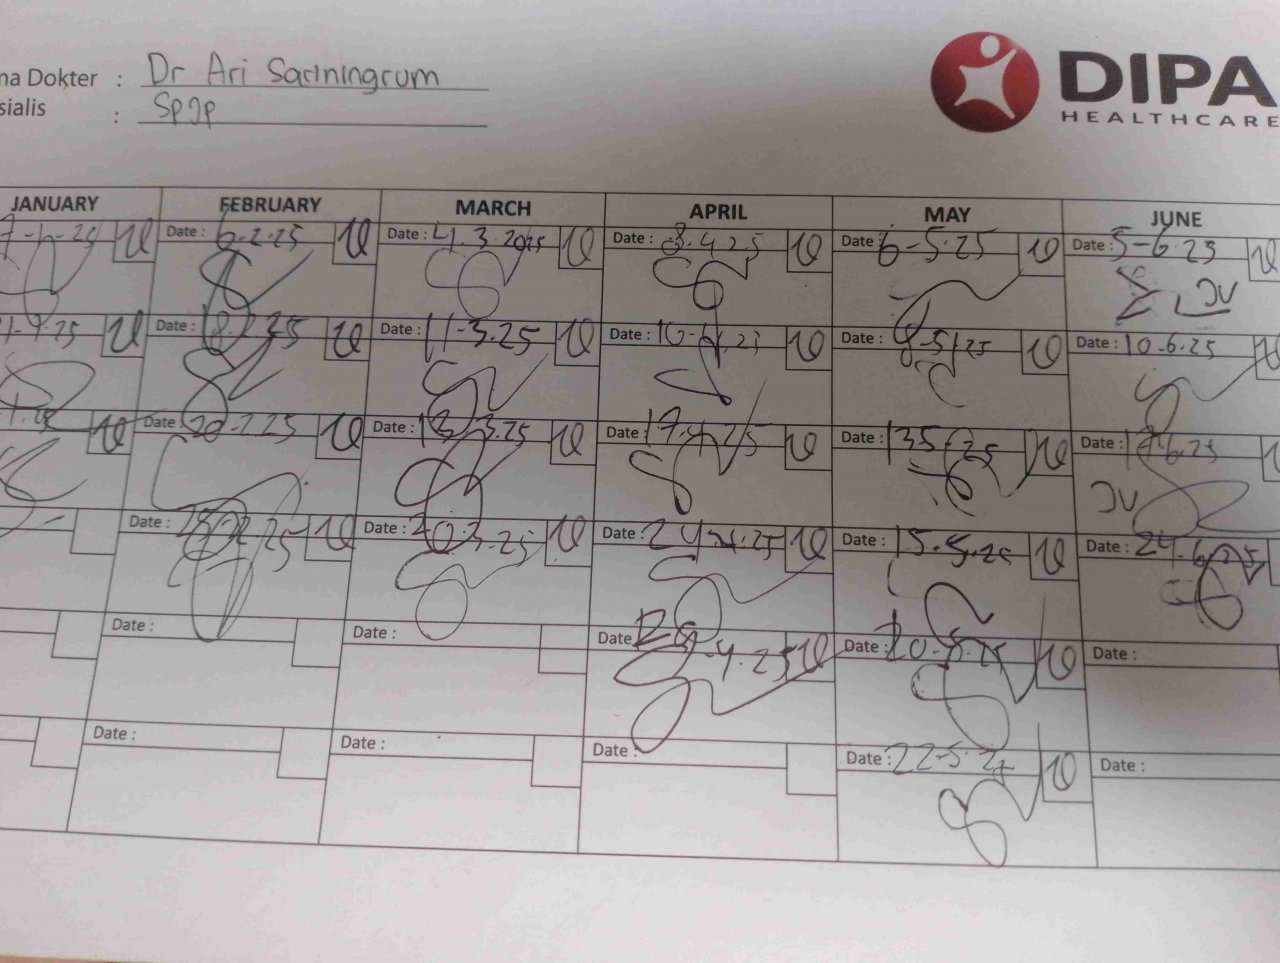 na Dokter : Dr Ari Sariningrum
sialis : SpJp
DIPA
HEALTHCARE
JANUARY FEBRUARY MARCH APRIL MAY JUNE
7-1-25 Date : 6-2-25 Date : 4.3.2025 Date : 8.4.25 Date 6-5.25 Date : 5-6.25
JV
Date : Date : 11-3.25 Date : 10-4.25 Date : 8-5-25 Date : 10-6.25
Date : 20-2.25 Date : 13-3.25 Date : 17.4.25 Date : 135-25 Date :
JV
Date : Date : 20.3.25 Date : 24.4.25 Date : 15.5.25 Date : 24.6.25
Date : Date : Date -4.25 Date : 20.5.25 Date :
Date : Date : Date : Date : 22-5.25 Date :